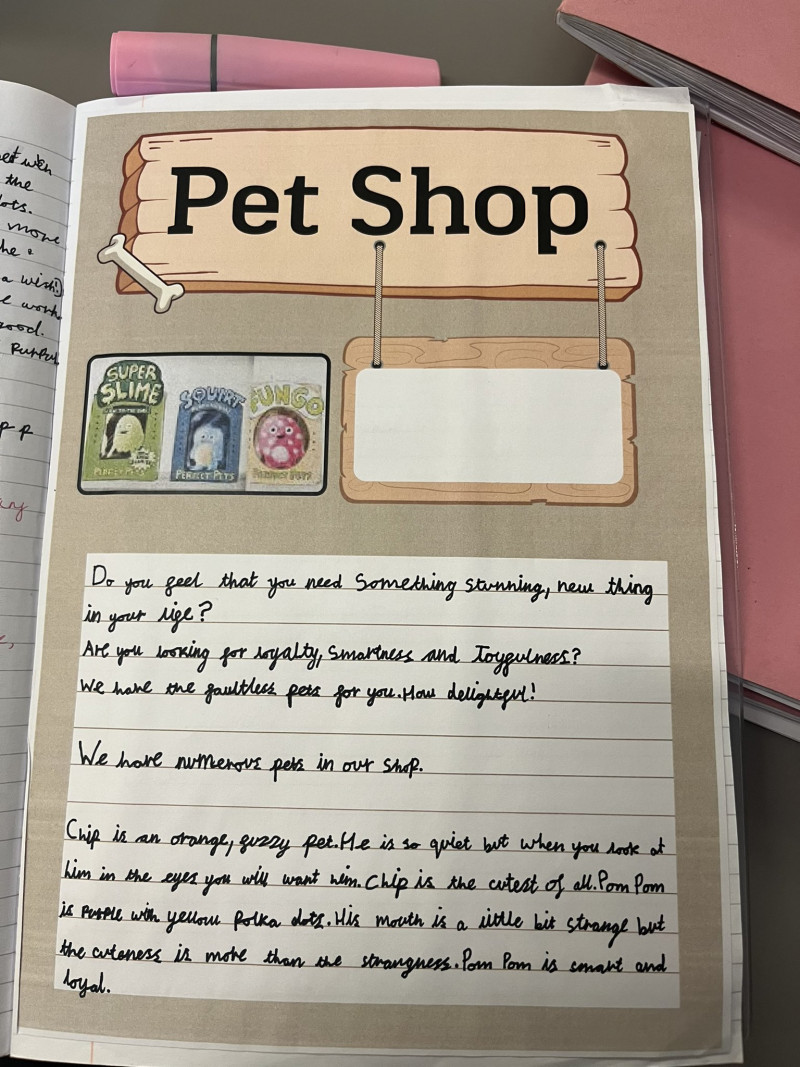 the
ots.
more
he
a wish!)
work
good.
Purpul
Pet Shop
SUPER
SLIME
PERFECT PETS
SQUIRT
PERFECT PETS
FUNGO
PERFECT PETS
Do you feel that you need Something stunning, new thing
in your life?
Are you looking for loyalty, Smartness and Joyfulness?
We have the faultless pets for you. How delightful!
We have numerous pets in our shop.
Chip is an orange, fuzzy pet. He is so quiet but when you look at
him in the eyes you will want him. Chip is the cutest of all. Pom Pom
is purple with yellow polka dots. His mouth is a little bit strange but
the cuteness is more than the strangness. Pom Pom is smart and
loyal.